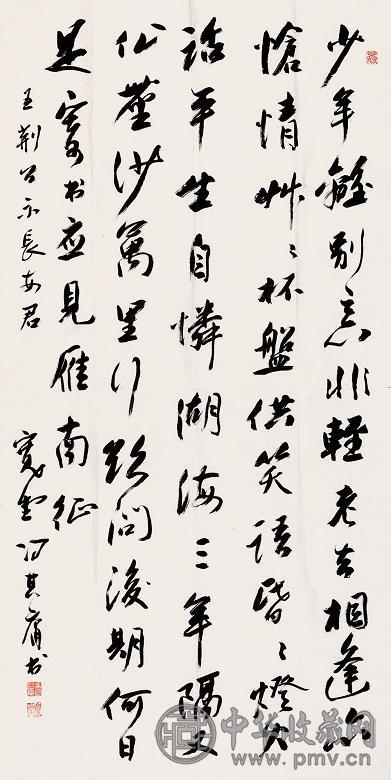 少年離別意非輕老去相逢亦
愴情艸〻杯盤供笑語昏〻燈火
話平生自憐湖海三年隔又
作塵沙萬里行欲問後期何日
是寄书應見雁南征
王荆公示長安君 寬堂冯其庸书
中华收藏网
www.pmv.cn